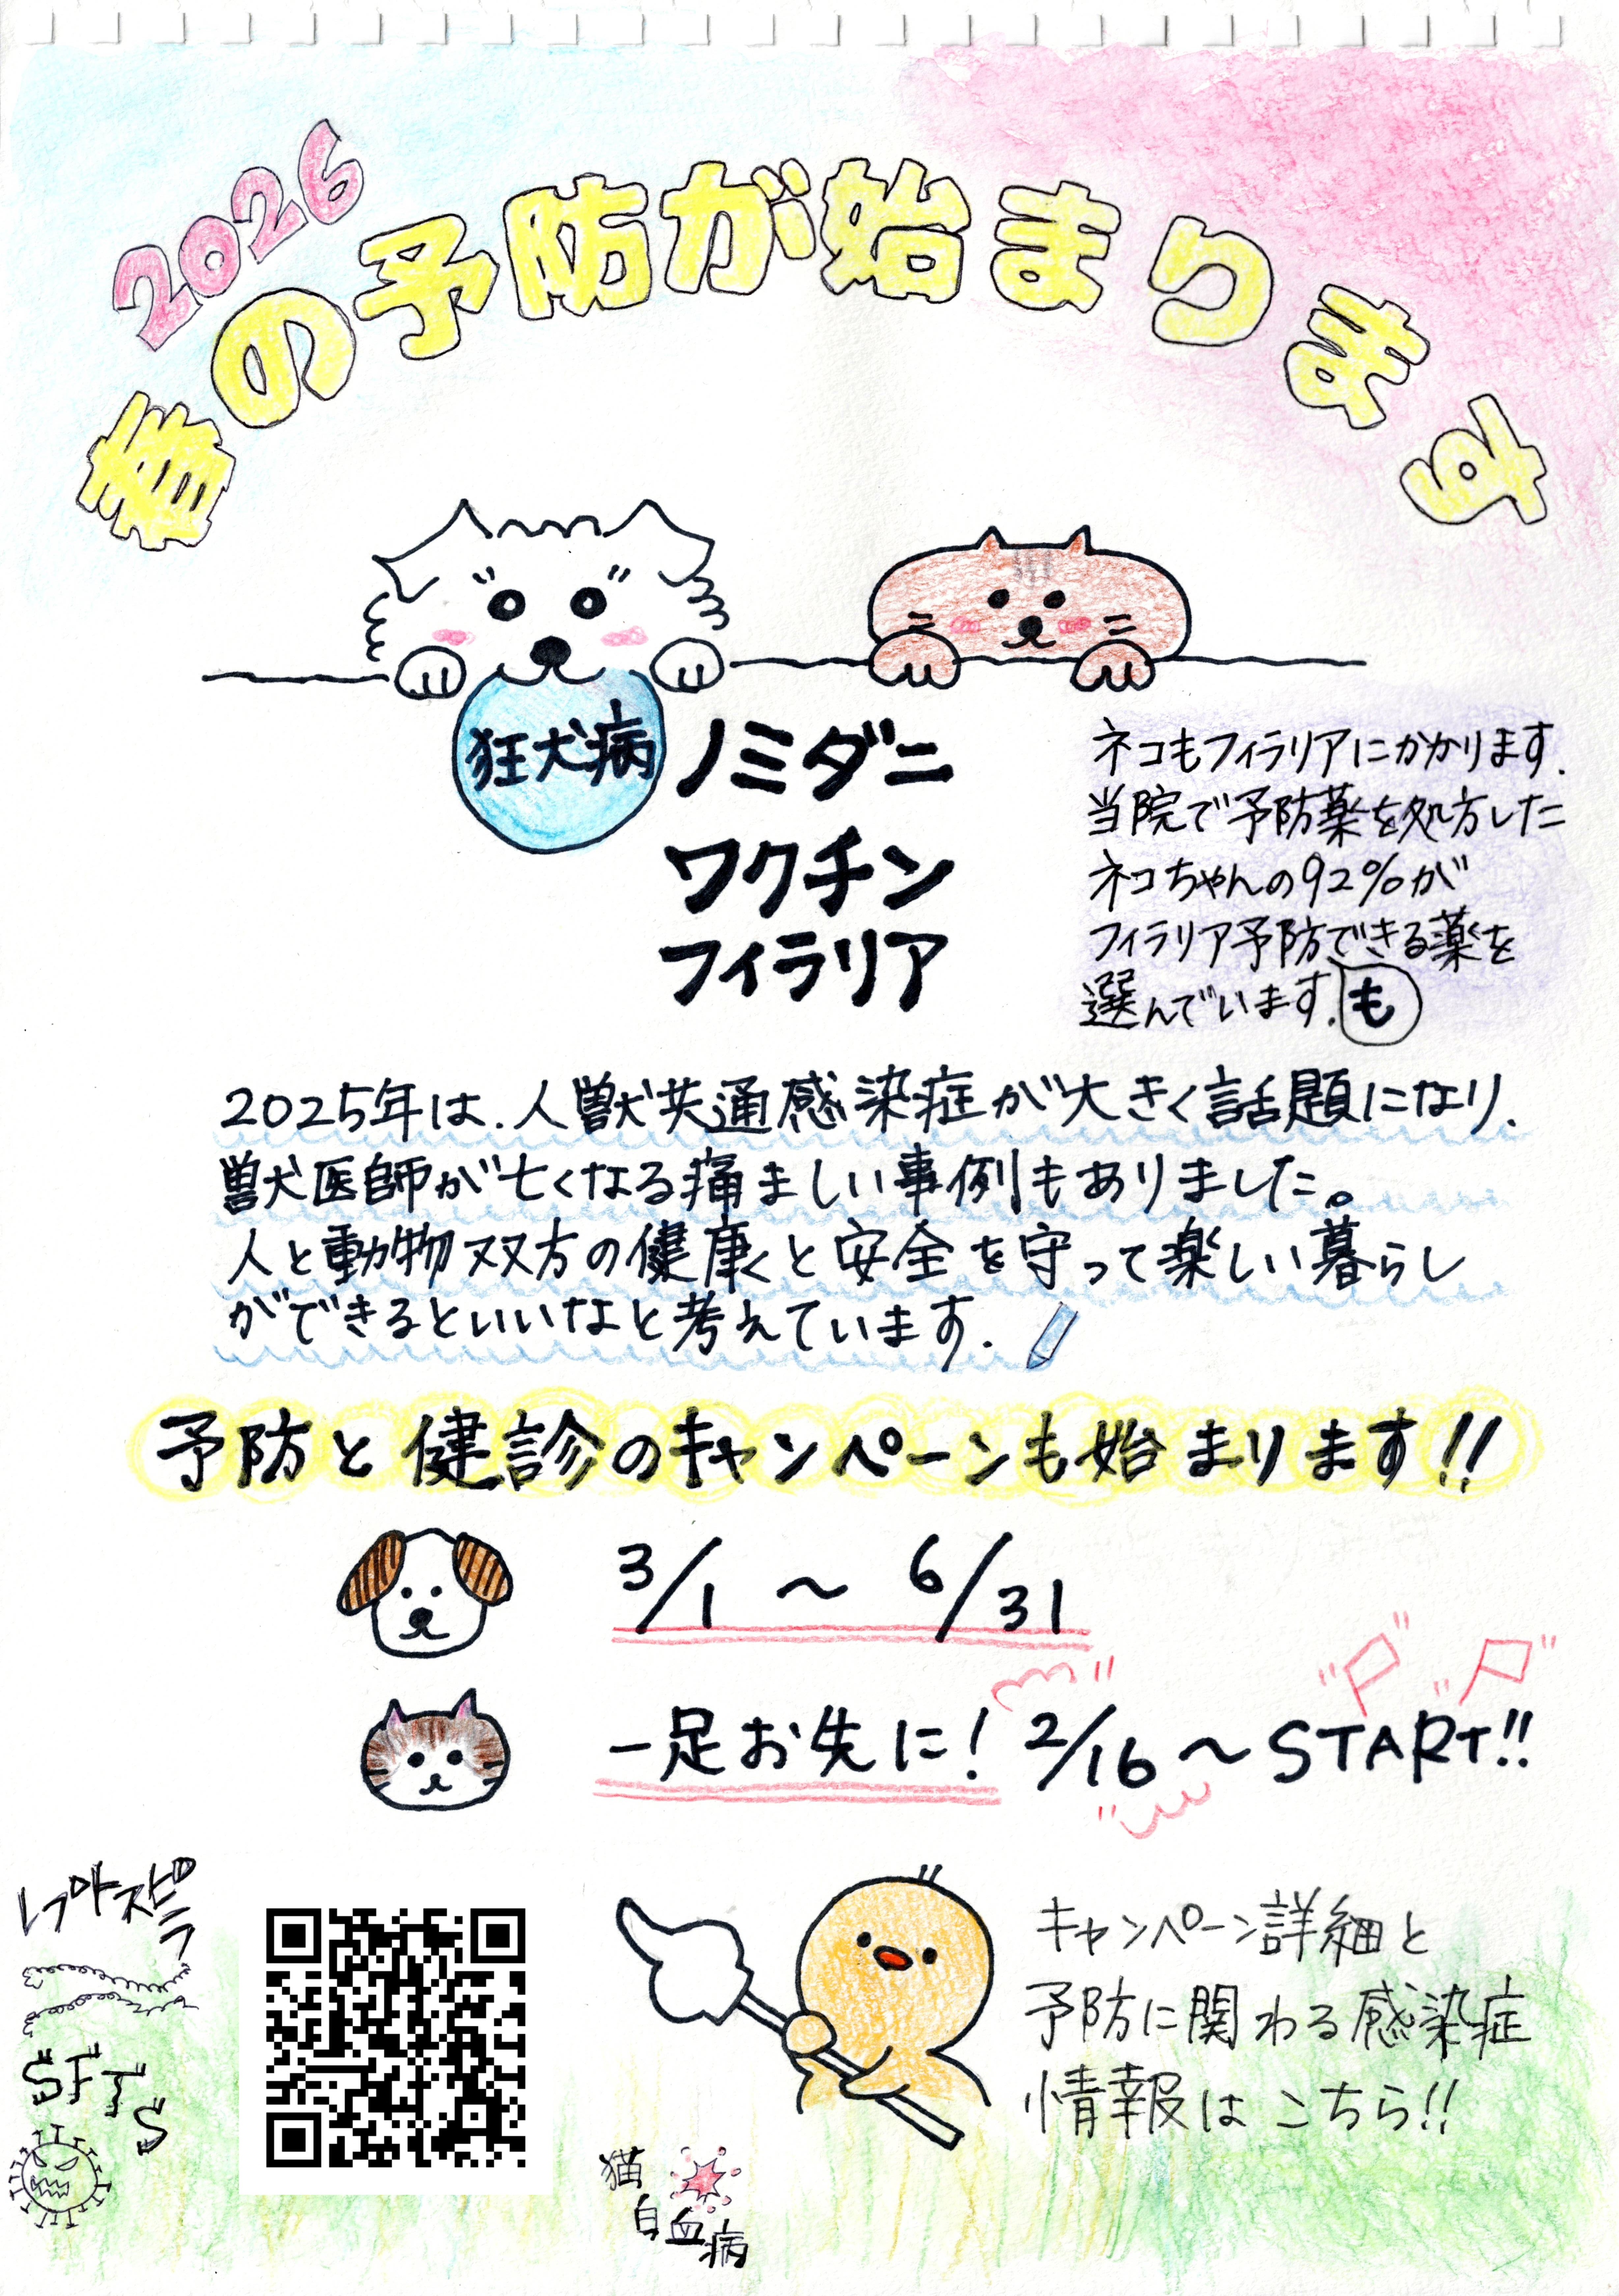 2026
春の予防が始まります
狂犬病
ノミダニ
ワクチン
フィラリア
ネコもフィラリアにかかります.
当院で予防薬を処方した
ネコちゃんの92%が
フィラリア予防できる薬を
選んでいます.
も
2025年は.人獣共通感染症が大きく話題になり.
獣医師が亡くなる痛ましい事例もありました。
人と動物双方の健康と安全を守って楽しい暮らし
ができるといいなと考えています.
予防と健診のキャンペーンも始まります!!
3/1 ～ 6/31
一足お先に! 2/16 ～ START!!
レプトスピラ
SFTS
キャンペーン詳細と
予防に関わる感染症
情報は こちら!!
猫
白血病